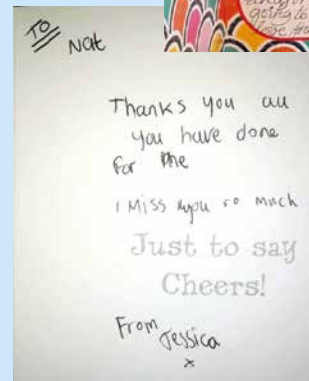 To Nat
going to
Thanks you all
you have done
for me
I Miss you so much
Just to say
Cheers!
From Jessica
x